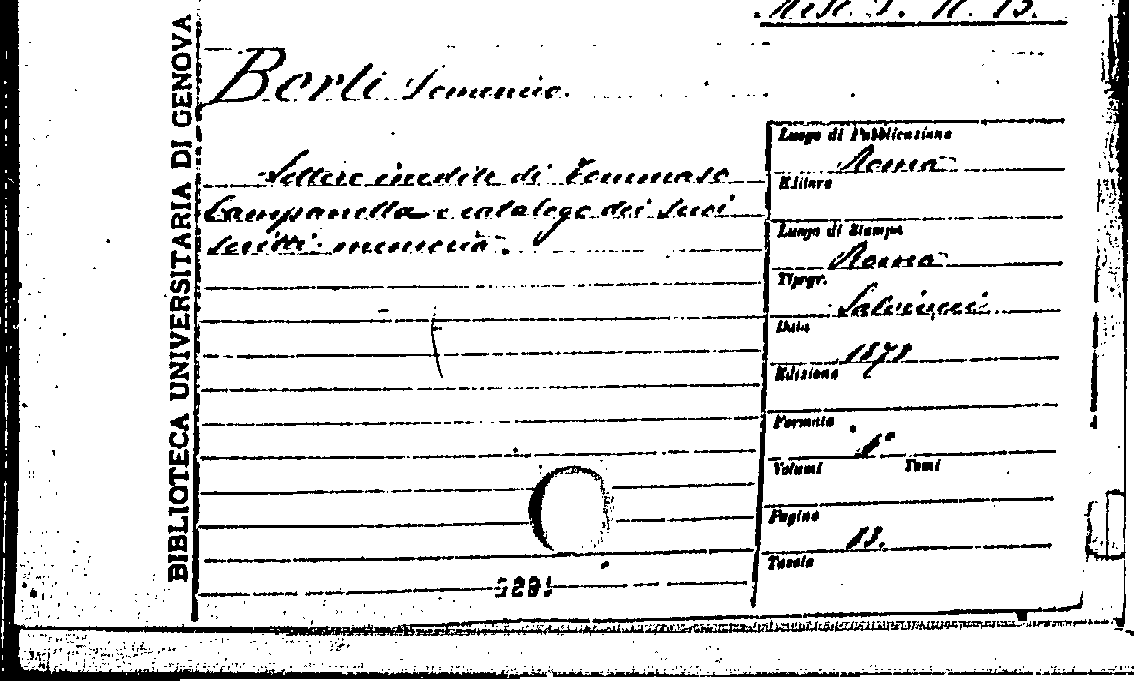 Misc. N. 13.
BIBLIOTECA UNIVERSITARIA DI GENOVA
Berti Domenico.
Lettere inedite di Tommaso
Campanella e catalogo dei suoi
scritti. memoria.
Luogo di Pubblicazione
Roma
Editore
Luogo di Stampa
Roma
Tipogr.
Salviucci
Data
1878
Edizione
Formato
Volumi Tomi
Pagine
Tavole